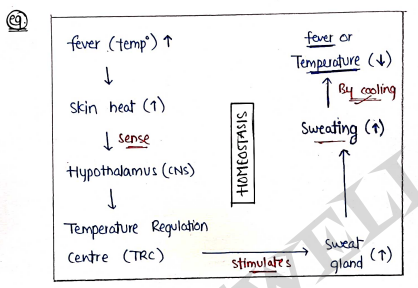 eg.
fever (temp°) ↑
↓
Skin heat (↑)
↓ sense
Hypothalamus (CNS)
↓
Temperature Regulation
Centre (TRC)
→ stimulates
sweat
gland (↑)
↑
Sweating (↑)
↑ By cooling
fever or
Temperature (↓)
HOMEOSTASIS